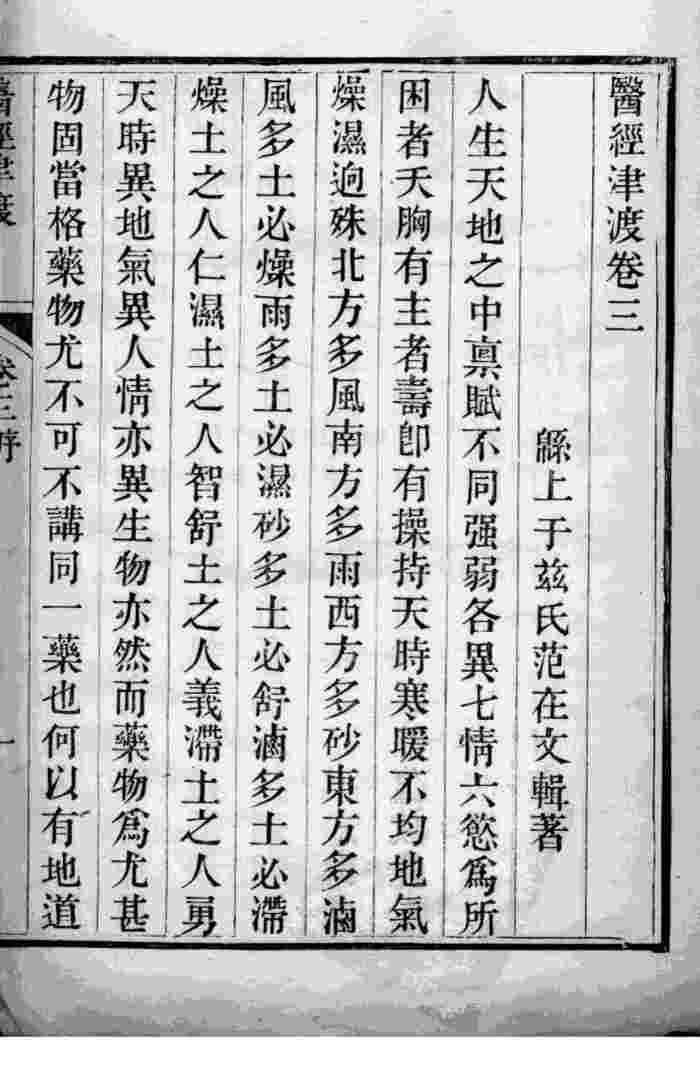 醫經津渡卷三
緜上于茲氏范在文輯著
人生天地之中禀賦不同强弱各異七情六慾爲所
困者夭胸有主者壽卽有操持天時寒暖不均地氣
燥濕逈殊北方多風南方多雨西方多砂東方多滷
風多土必燥雨多土必濕砂多土必舒滷多土必滯
燥土之人仁濕土之人智舒土之人義滯土之人勇
天時異地氣異人情亦異生物亦然而藥物爲尤甚
物固當格藥物尤不可不講同一藥也何以有地道
醫經津渡
卷三序
一